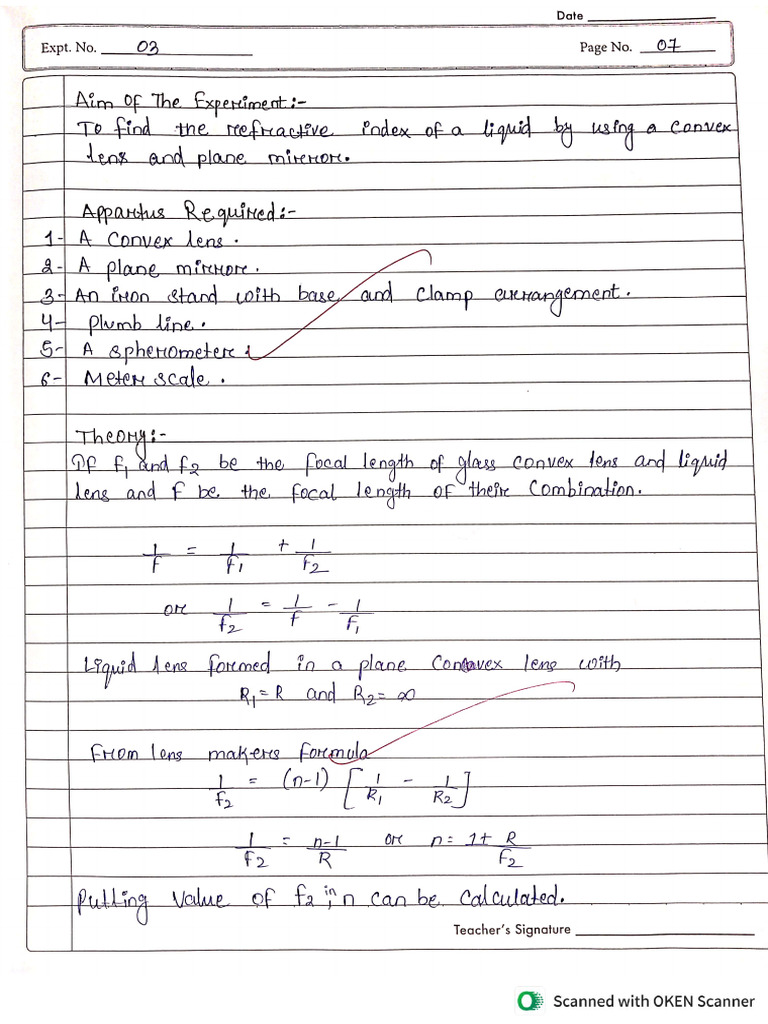 Date
Expt. No. 03
Page No. 07
Aim Of The Experiment:-
To find the refractive index of a liquid by using a convex
lens and plane mirror.
Appartus Required:-
1- A Convex lens.
2- A plane mirror.
3- An iron stand with base and clamp arrangement.
4- Plumb line.
5- A spherometer
6- Meter scale.
Theory:-
If f1 and f2 be the focal length of glass convex lens and liquid
lens and F be the focal length of their Combination.
1/F = 1/F1 + 1/F2
or 1/F2 = 1/F - 1/F1
Liquid lens formed in a plane Concavex lens with
R1 = R and R2 = ∞
From lens makers formula
1/f2 = (n-1) [1/R1 - 1/R2]
1/F2 = n-1/R or n = 1 + R/F2
Putting value of f2 in, n can be calculated.
Teacher's Signature
Scanned with OKEN Scanner